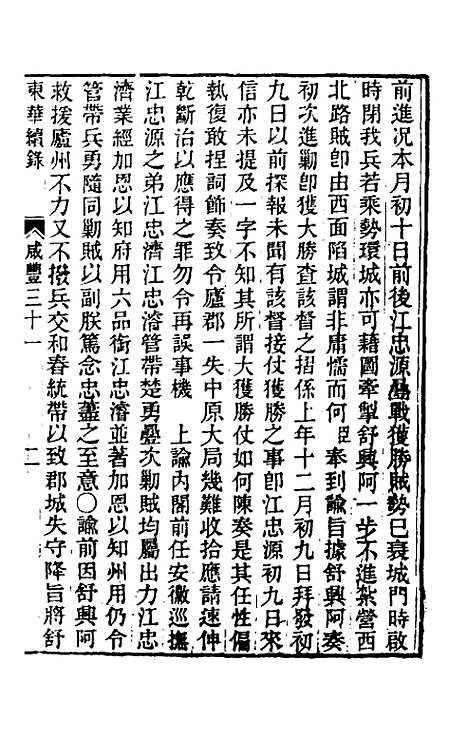 前進況本月初十日前後江忠源疊戰獲勝賊勢已衰城門時啟
時閉我兵若乘勢環城亦可藉圖牽掣舒興阿一步不進紮營西
北路賊卽由西面陷城謂非庸懦而何臣奉到諭旨據舒興阿奏
初次進勦卽獲大勝查該督之摺係上年十二月初九日拜發初
九日以前探報未聞有該督接仗獲勝之事卽江忠源初九日來
信亦未提及一字不知其所謂大獲勝仗如何陳奏是其任性偏
執復敢捏詞飾奏致令廬郡一失中原大局幾難收拾應請速伸
乾斷治以應得之罪勿令再誤事機　上諭內閣前任安徽巡撫
江忠源之弟江忠濟江忠濬管帶楚勇疊次勦賊均屬出力江忠
濟業經加恩以知府用六品銜江忠濬並著加恩以知州用仍令
管帶兵勇隨同勦賊以副朕篤念忠藎之至意〇諭前因舒興阿
救援廬州不力又不撥兵交和春統帶以致郡城失守降旨將舒
東華續錄　咸豐三十一　二